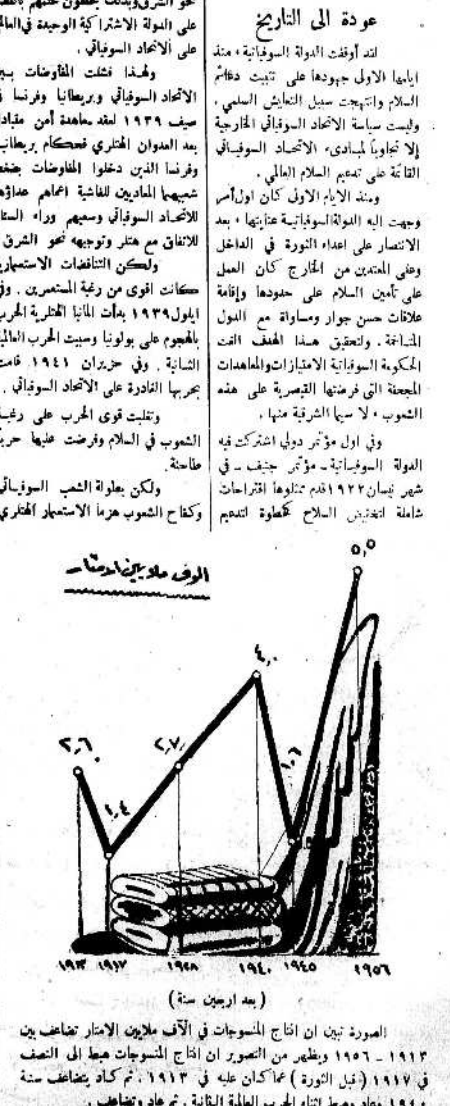 عودة الى التاريخ
لقد أوقفت الدولة السوفياتية ، منذ
ايامها الاولى جهودها على تثبيت دعائم
السلام وانتهجت سبيل التعايش السلمي .
وليست سياسة الاتحاد السوفياتي الخارجية
إلا تجاوباً لمبادىء الاتحاد السوفياتي
القائمة على تدعيم السلام العالمي .
ومنذ الايام الاولى كان اول أمر
وجهت اليه الدولة السوفياتية عنايتها ، بعد
الانتصار على اعداء الثورة في الداخل
وعلى المعتدين من الخارج كان العمل
على تأمين السلام على حدودها وإقامة
علاقات حسن جوار ومساواة مع الدول
المتاخمة . ولتحقيق هذا الهدف الغت
الحكومة السوفياتية الامتيازات والمعاهدات
المجحفة التي فرضتها القيصرية على هذه
الشعوب ، لا سيما الشرقية منها .
وفي اول مؤتمر دولي اشتركت فيه
الدولة السوفياتية ـ مؤتمر جنيف ـ في
شهر نيسان ١٩٢٢ قدم ممثلوها اقتراحات
شاملة لتخفيض السلاح كخطوة لتدعيم
على الدولة الاشتراكية الوحيدة في العالم
على الاتحاد السوفياتي .
ولهذا فشلت المفاوضات بين
الاتحاد السوفياتي وبريطانيا وفرنسا في
صيف ١٩٣٩ لعقد معاهدة أمن
بعد العدوان الهتلري فحكام بريطانيا
وفرنسا الذين دخلوا المفاوضات بضغط
شعبيهما المعاديين للفاشية اعماهم عداؤهم
للاتحاد السوفياتي وسعيهم وراء
للاتفاق مع هتلر وتوجيهه نحو الشرق
ولكن التناقضات الاستعمارية
كانت اقوى من رغبة المستعمرين . وفي
ايلول ١٩٣٩ بدأت المانيا الهتلرية الحرب
بالهجوم على بولونيا وسببت الحرب العالمية
الثانية . وفي حزيران ١٩٤١ قامت
بحربها الغادرة على الاتحاد السوفياتي .
وتغلبت قوى الحرب على رغبة
الشعوب في السلام وفرضت عليها حرباً
طاحنة .
ولكن بطولة الشعب السوفياتي
وكفاح الشعوب هزما الاستعمار الهتلري
الوف ملايين الامتار
٥,٥
٤,٠
٢,٦
٢,٧
١,٦
١,٤
١٩١٣ ١٩١٧ ١٩٢٨ ١٩٤٠ ١٩٤٥ ١٩٥٦
( بعد اربعين سنة )
الصورة تبين ان انتاج المنسوجات في الآف ملايين الامتار تضاعف بين
١٩١٣ ـ ١٩٥٦ ويظهر من التصوير ان انتاج المنسوجات هبط الى النصف
في ١٩١٧ ( قبل الثورة ) عما كان عليه في ١٩١٣ . ثم كاد يتضاعف سنة